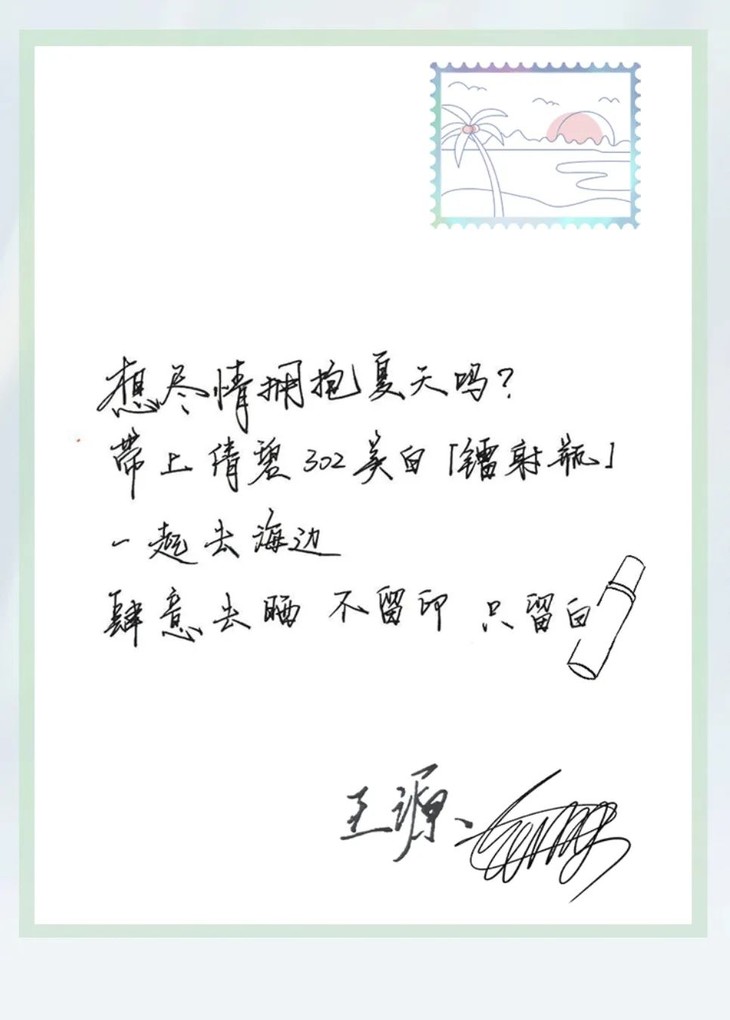 想尽情拥抱夏天吗?
带上倩碧302美白「镭射瓶」
一起去海边
肆意去晒 不留印 只留白
王源、